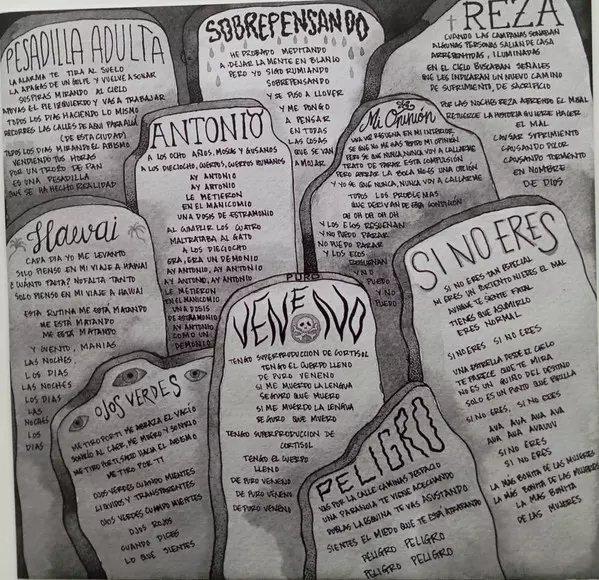 PESADILLA ADULTA
LA ALARMA TE TIRA AL SUELO
LA APAGAS DE UN GOLPE Y VUELVE A SONAR
SUSPIRAS MIRANDO AL CIELO
APOYAS EL PIE IZQUIERDO Y VAS A TRABAJAR
TODOS LOS DIAS HACIENDO LO MISMO
RECORRES LAS CALLES DE AQUI PARA ALLÁ
(DE ESTA CIUDAD)
TODOS LOS DIAS MIRANDO EL ABISMO
VENDIENDO TUS HORAS
POR UN TROZO DE PAN
ES UNA PESADILLA
QUE SE HA HECHO REALIDAD
SOBREPENSANDO
HE PROBADO MEDITANDO
A DEJAR LA MENTE EN BLANCO
PERO YO SIGO RUMIANDO
SOBREPENSANDO
Y SE PUSO A LLOVER
Y ME PONGO
A PENSAR
EN TODAS
LAS COSAS
QUE SE VAN
A MOJAR
REZA
CUANDO LAS CAMPANAS SONABAN
ALGUNAS PERSONAS SALIAN DE CASA
ARREPENTIDAS, ILUMINADAS
EN EL CIELO BUSCABAN SEÑALES
QUE LES INDICARAN UN NUEVO CAMINO
DE SUFRIMIENTO, DE SACRIFICIO
POR LAS NOCHES REZA ABRIENDO EL MISAL
RETUERCE LA HISTORIA QUIERE HACER
EL MAL
CAUSAR SUFRIMIENTO
CAUSANDO DOLOR
CAUSANDO TORMENTO
EN NOMBRE
DE DIOS
ANTONIO
A LOS OCHO AÑOS, MOSCAS Y GUSANOS
A LOS DIECIOCHO, CUERPOS, CUERPOS HUMANOS
AY ANTONIO
AY ANTONIO
LE METIERON
EN EL MANICOMIO
UNA DOSIS DE ESTRAMONIO
AL CUMPLIR LOS CUATRO
MALTRATABA AL GATO
A LOS DIECIOCHO
ERA, ERA UN DEMONIO
AY ANTONIO, AY ANTONIO
AY ANTONIO, AY ANTONIO
LE METIERON
EN EL MANICOMIO
UNA DOSIS
DE ESTRAMONIO
AY ANTONIO
COMO UN
DEMONIO
Mi Opinión
UNA VOZ RESUENA EN MI INTERIOR
SE QUE NO ME HAS PEDIDO MI OPINIÓN
PERO SE QUE NUNCA, NUNCA VOY A CALLARME
TRATO DE PARAR ESTA COMPULSIÓN
PERO CERRAR LA BOCA NO ES UNA OPCIÓN
Y YO SE QUE NUNCA, NUNCA VOY A CALLARME
TODOS LOS PROBLEMAS
QUE DERIVAN DE ESTA CONDICIÓN
OH OH OH OH OH
Y LOS ECOS RESUENAN
Y NO PUEDO PARAR
NO PUEDO PARAR
Y LOS ECOS
RESUENAN
Y NO
PUEDO
Y NO
PUEDO
Hawai
CADA DIA YO ME LEVANTO
SOLO PIENSO EN MI VIAJE A HAWAI
¿CUÁNTO FALTA? NO FALTA TANTO
SOLO PIENSO EN MI VIAJE A HAWAI
ESTA RUTINA ME ESTÁ MATANDO
ME ESTÁ MATANDO
ME ESTÁ MATANDO
Y CUENTO, MANIAS
LAS NOCHES
LOS DIAS
LAS NOCHES
LOS DIAS
LAS
NOCHES
LOS
DIAS
PURO
VENENO
TENGO SUPERPRODUCCION DE CORTISOL
TENGO EL CUERPO LLENO
DE PURO VENENO
SI ME MUERDO LA LENGUA
SEGURO QUE MUERO
SI ME MUERDO LA LENGUA
SEGURO QUE MUERO
TENGO SUPERPRODUCCION DE
CORTISOL
TENGO EL CUERPO
LLENO
DE PURO VENENO
DE PURO VENENO
DE PURO VENENO
SI NO ERES
SI NO ERES TAN ESPECIAL
NI ERES UN PORTENTO NI ERES EL MAL
AUNQUE TE SIENTE FATAL
TIENES QUE ASUMIRLO
ERES NORMAL
SI NO ERES SI NO ERES
UNA ESTRELLA DESDE EL CIELO
TE PARECE QUE TE MIRA
NO ES UN GUIÑO DEL DESTINO
SOLO ES UN PUNTO QUE BRILLA
SI NO ERES, SI NO ERES
AUA AUA AUA AUA
AUA AUA AUAUUU
SI NO ERES
SI NO ERES
LA MÁS BONITA DE LAS MUJERES
LA MÁS BONITA DE LAS MUJERES
LA MÁS BONITA
DE LAS MUJERES
OJOS VERDES
ME TIRO POR TI ME ABRAZA EL VACIO
SONRIO AL CAER, ME MUERO Y SUSPIRO
ME TIRO POR TI, SALTO HACIA EL ABISMO
ME TIRO POR TI
OJOS VERDES CUANDO MIENTES
LIQUIDOS Y TRANSPARENTES
OJOS VERDES CUANDO MIENTES
OJOS ROJOS
CUANDO DICES
LO QUE SIENTES
PELIGRO
VAS POR LA CALLE CAMINAS DESPACIO
UNA PARANOIA TE VIENE ACECHANDO
DOBLAS LA ESQUINA TE VAS ASUSTANDO
SIENTES EL MIEDO QUE TE ESTÁ ATRAPANDO
PELIGRO PELIGRO
PELIGRO PELIGRO